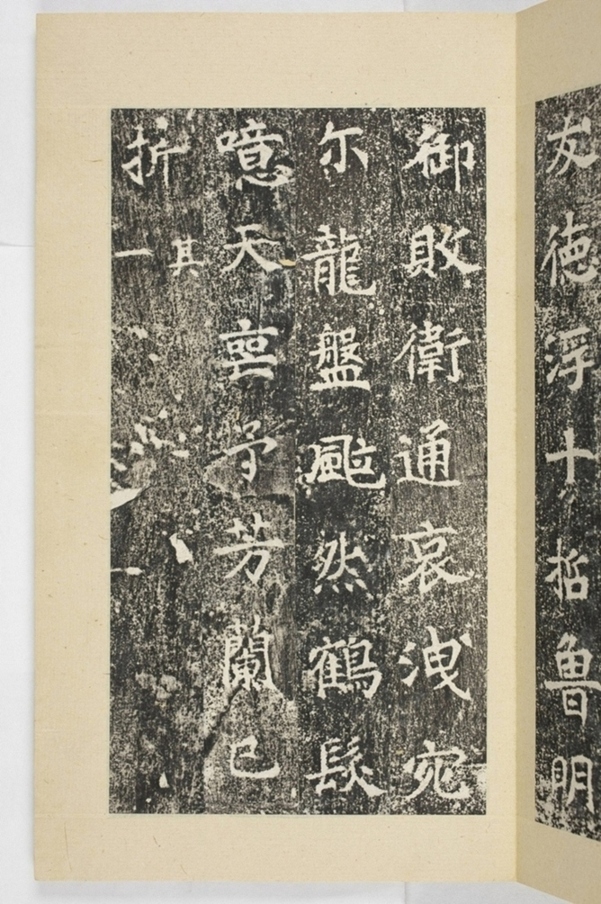 友德浮十哲魯明
御敗衛通哀洩宛
尔龍盤颯然鶴髮
噫天喪予芳蘭已
折其一